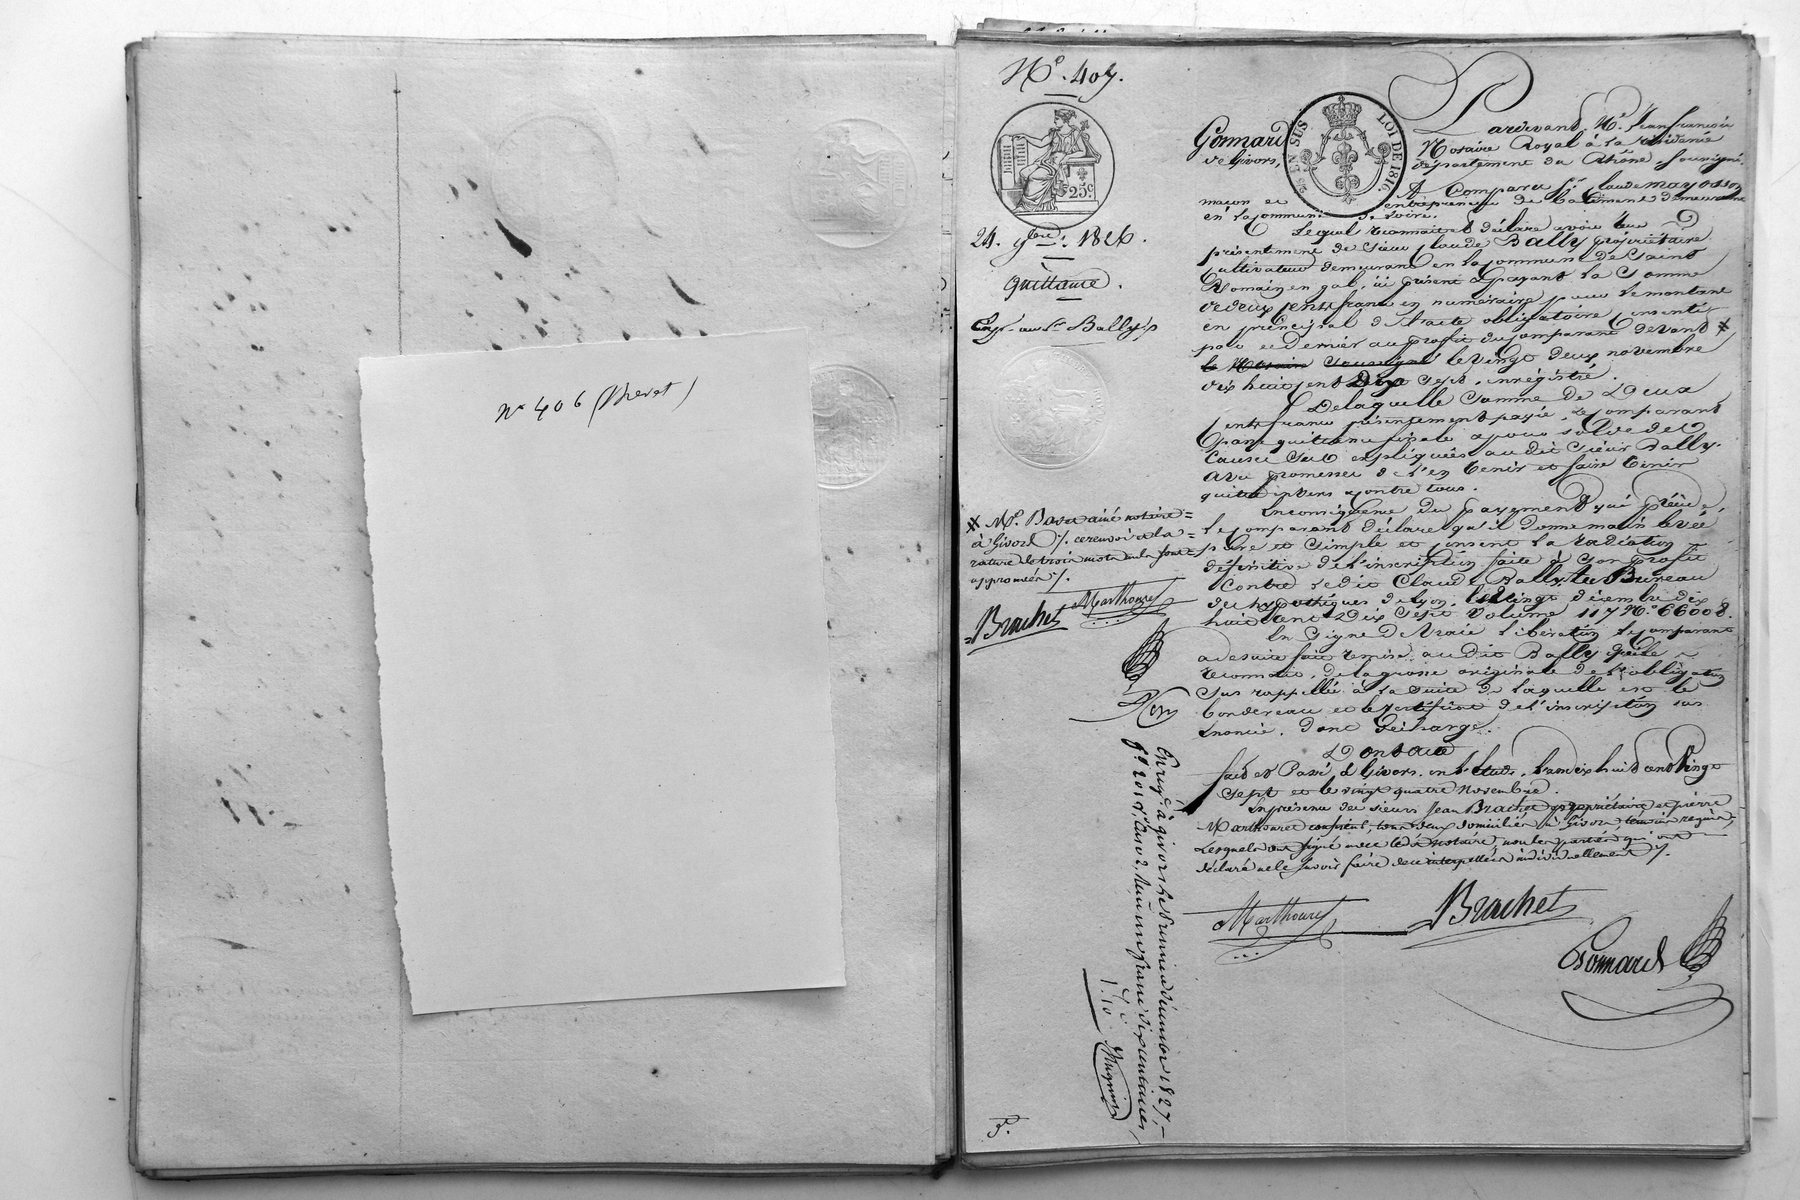 N° 406 (Brevet)
N° 407.
25 c
EN SUS LOI DE 1816.
24. 9bre 1827.
Quittance.
Exp. au Sr Bally
Pardevant Me Jean françois
Gonnard Notaire Royal à la résidence
de Givors, département du Rhône, soussigné,
A Comparu Sr Claude
maçon et entrepreneur de bâtiments demeurant
en la commune de Loire.
Lequel reconnait et déclare avoir reçu
présentement de Sieur Claude Bally propriétaire
cultivateur demeurant en la commune de Saint
Romain en gal, ici présent et payant la Somme
de deux cents francs en numéraire pour le montant
en principal de l'acte obligatoire consenti
par ce dernier au profit du comparant devant #
le Notaire Soussigné le vingt deux novembre
dix huit cent Dix sept, enregistré.
De laquelle Somme de Deux
cents francs présentement payée, le comparant
passe quittance finale et pour solde des
causes sus expliquées audit Sieur Bally.
avec promesse de l'en tenir et faire tenir
quitte envers et contre tous.
En conséquence du payement qui précède,
le comparant déclare qu'il donne main levée
pure et simple et consent la radiation
définitive de l'inscription faite à son profit
Contre ledit Claude Bally, au Bureau
des hypothèques de Lyon, le Vingt décembre dix
huit cent Dix sept Volume 117 N° 66008.
En Signe De Vraie libération le comparant
a de suite fait remise audit Bally qui le
reconnait, de la grosse originale de l'obligation
sus rappellée à la suite de laquelle est le
bordereau et le certificat de l'inscription sus
énoncée. Dont Décharge.
Dont acte
fait et Passé à Givors, en l'étude, l'an dix huit cent Vingt
sept et le vingt quatre Novembre.
En présence des sieurs Jean Brachet propriétaire et pierre
Marthouret tous deux domiciliés à Givors, témoins requis,
Lesquels ont signé avec le dt notaire, non les parties qui ont
déclaré ne le savoir faire de ce interpellées individuellement ./.
# Me Bovet ainé notaire
à Givors ./. ce renvoi et la
rature de trois mots en la
approuvés ./.
Marthouret
Brachet
Marthouret
Brachet
Gonnard
Enregé à givors le premier décembre 1827,
fo 201 Ro, case 2. Reçu un franc dix centimes,
1.10